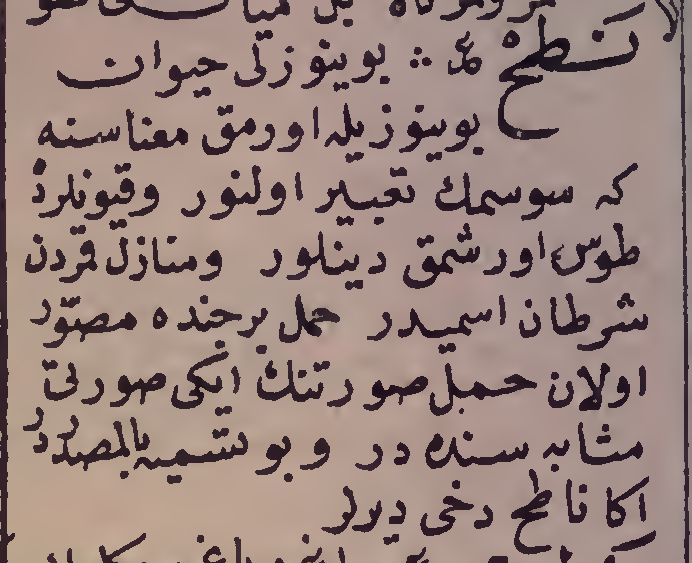 نطح ع :: بوینوزلی حیوان
بوینوزیله اورمق معناسنه
که سوسمك تعبیر اولنور وقیونلرده
طوس اورشمق دینلور ومنازل قمردن
شرطان اسمیدر حمل برجنده مصور
اولان حمل صورتنك ایکی صورتی
مثابه سنده در وبو تسمیه بالمصدردر
اکا ناطح دخی دیرلر